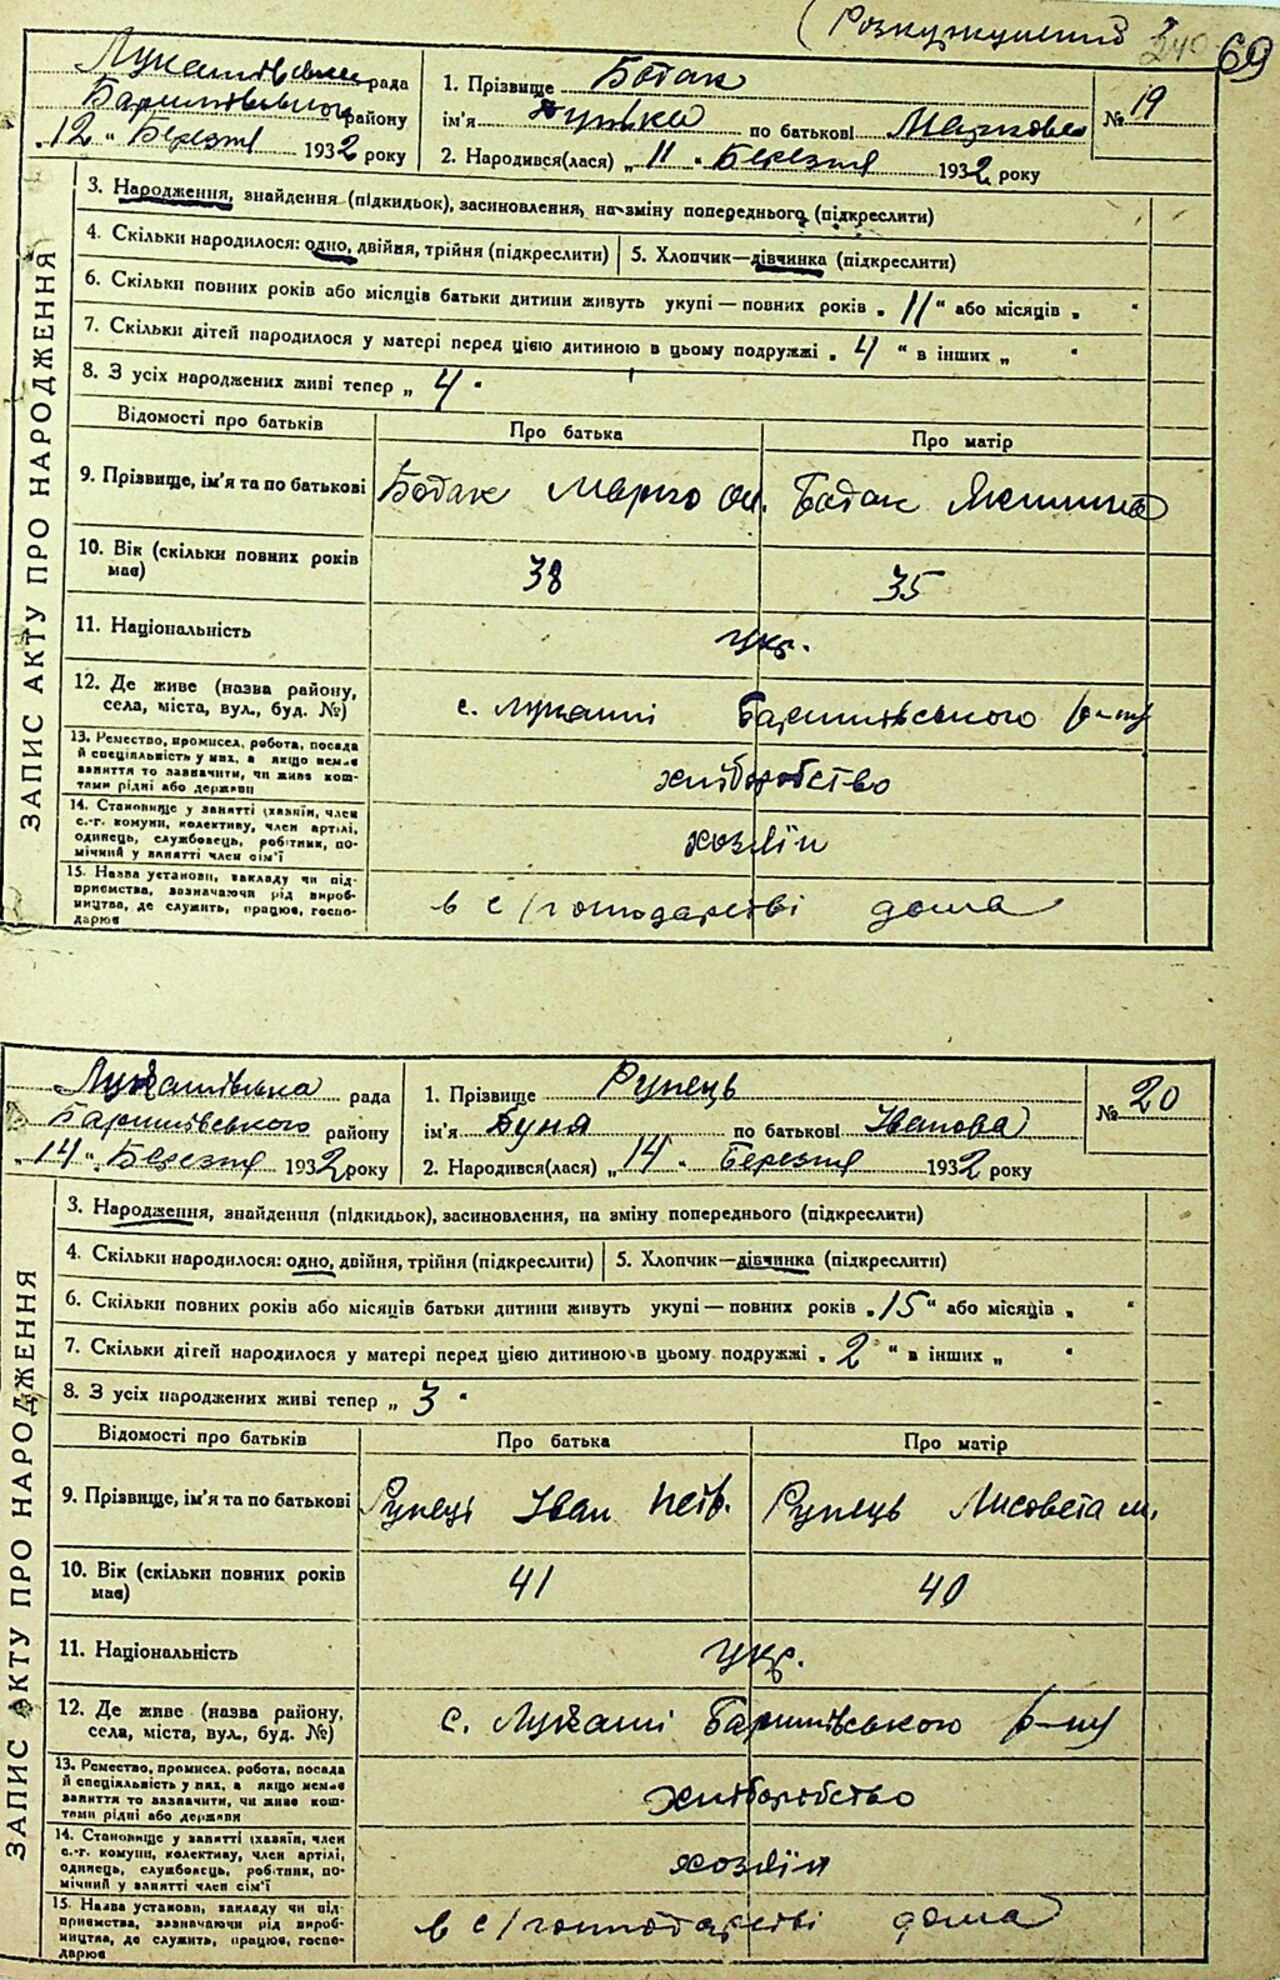 (Розкуркулений 240 69
Лукашівська рада
Баришівського району
„12“ Березня 1932 року
1. Прізвище Ботак
ім'я по батькові Маркова
2. Народився(лася) „11“ Березня 1932 року
№ 19
ЗАПИС АКТУ ПРО НАРОДЖЕННЯ
3. Народження, знайдення (підкидьок), засиновлення, на зміну попереднього (підкреслити)
4. Скільки народилося: одно, двійня, трійня (підкреслити) 5. Хлопчик—дівчинка (підкреслити)
6. Скільки повних років або місяців батьки дитини живуть укупі — повних років „11“ або місяців „ “
7. Скільки дітей народилося у матері перед цією дитиною в цьому подружжі „4“ в інших „ “
8. З усіх народжених живі тепер „4“
Відомості про батьків Про батька Про матір
9. Прізвище, ім'я та по батькові Ботак Марко Ботак
10. Вік (скільки повних років має) 38 35
11. Національність укр.
12. Де живе (назва району, села, міста, вул., буд. №) с. Лукаші Баришівського р-ну
13. Ремество, промисел, робота, посада
й спеціяльність у них, а якщо немає
заняття то зазначити, чи живе кош-
тами рідні або держави хліборобство
14. Становище у занятті (хазяїн, член
с.-г. комуни, колективу, член артілі,
одинець, службовець, робітник, по-
мічний у занятті член сім'ї хозяїн
15. Назва установи, закладу чи під-
приємства, зазначаючи рід вироб-
ництва, де служить, працює, госпо-
дарює в с/господарстві дома
Лукашівська рада
Баришівського району
„14“ Березня 1932 року
1. Прізвище Рупець
ім'я Буня по батькові Іванова
2. Народився(лася) „14“ Березня 1932 року
№ 20
ЗАПИС АКТУ ПРО НАРОДЖЕННЯ
3. Народження, знайдення (підкидьок), засиновлення, на зміну попереднього (підкреслити)
4. Скільки народилося: одно, двійня, трійня (підкреслити) 5. Хлопчик—дівчинка (підкреслити)
6. Скільки повних років або місяців батьки дитини живуть укупі — повних років „15“ або місяців „ “
7. Скільки дітей народилося у матері перед цією дитиною в цьому подружжі „2“ в інших „ “
8. З усіх народжених живі тепер „3“
Відомості про батьків Про батька Про матір
9. Прізвище, ім'я та по батькові Рупець Іван Петр. Рупець Лисовета м.
10. Вік (скільки повних років має) 41 40
11. Національність укр.
12. Де живе (назва району, села, міста, вул., буд. №) с. Лукаші Баришівського р-ну
13. Ремество, промисел, робота, посада
й спеціяльність у них, а якщо немає
заняття то зазначити, чи живе кош-
тами рідні або держави хліборобство
14. Становище у занятті (хазяїн, член
с.-г. комуни, колективу, член артілі,
одинець, службовець, робітник, по-
мічний у занятті член сім'ї хозяїн
15. Назва установи, закладу чи під-
приємства, зазначаючи рід вироб-
ництва, де служить, працює, госпо-
дарює в с/господарстві дома